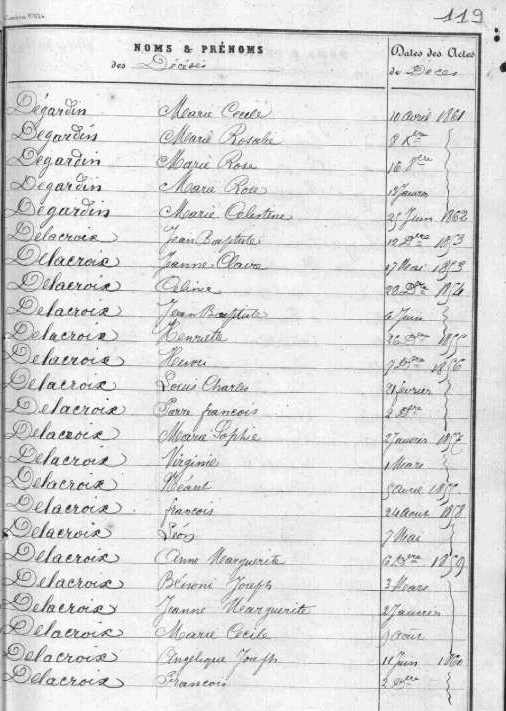 119
NOMS & PRÉNOMS
des Décédés
Dates des Actes
de Décès
Dégardin Marie Cécile 10 avril 1861
Dégardin Marie Rosalie 8
Dégardin Marie Rose 16
Dégardin Marie Rose Janvier
Dégardin Marie Célestine 25 Juin 1862
Delacroix Jean Baptiste 12 Dbre 1853
Delacroix Jeanne Clara 17 Mai 1853
Delacroix Céline 20 1854
Delacroix Jean Baptiste 6 Juin
Delacroix Henriette 26
Delacroix 7 1856
Delacroix Louis Charles 21 février
Delacroix Pierre françois 2
Delacroix Marie Sophie 2 Janvier 1857
Delacroix Virginie 1 Mars
Delacroix Néant 5 avril
Delacroix françois 24 août 1858
Delacroix Léon 7 Mai
Delacroix Anne Marguerite 6 Dbre 1859
Delacroix Bénoni Joseph 3 Mars
Delacroix Jeanne Marguerite 2 Janvier
Delacroix Marie Cécile 9 août
Delacroix Angélique Joseph 11 Juin 1860
Delacroix François 2